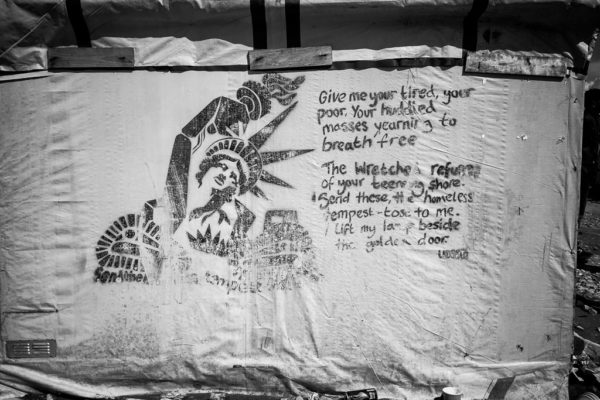 Give me your tired, your
poor, Your huddled
masses yearning to
breath free
The Wretched refuse
of your teeming shore.
Send these, the homeless
tempest-tost to me.
I Lift my lamp beside
the golden door.